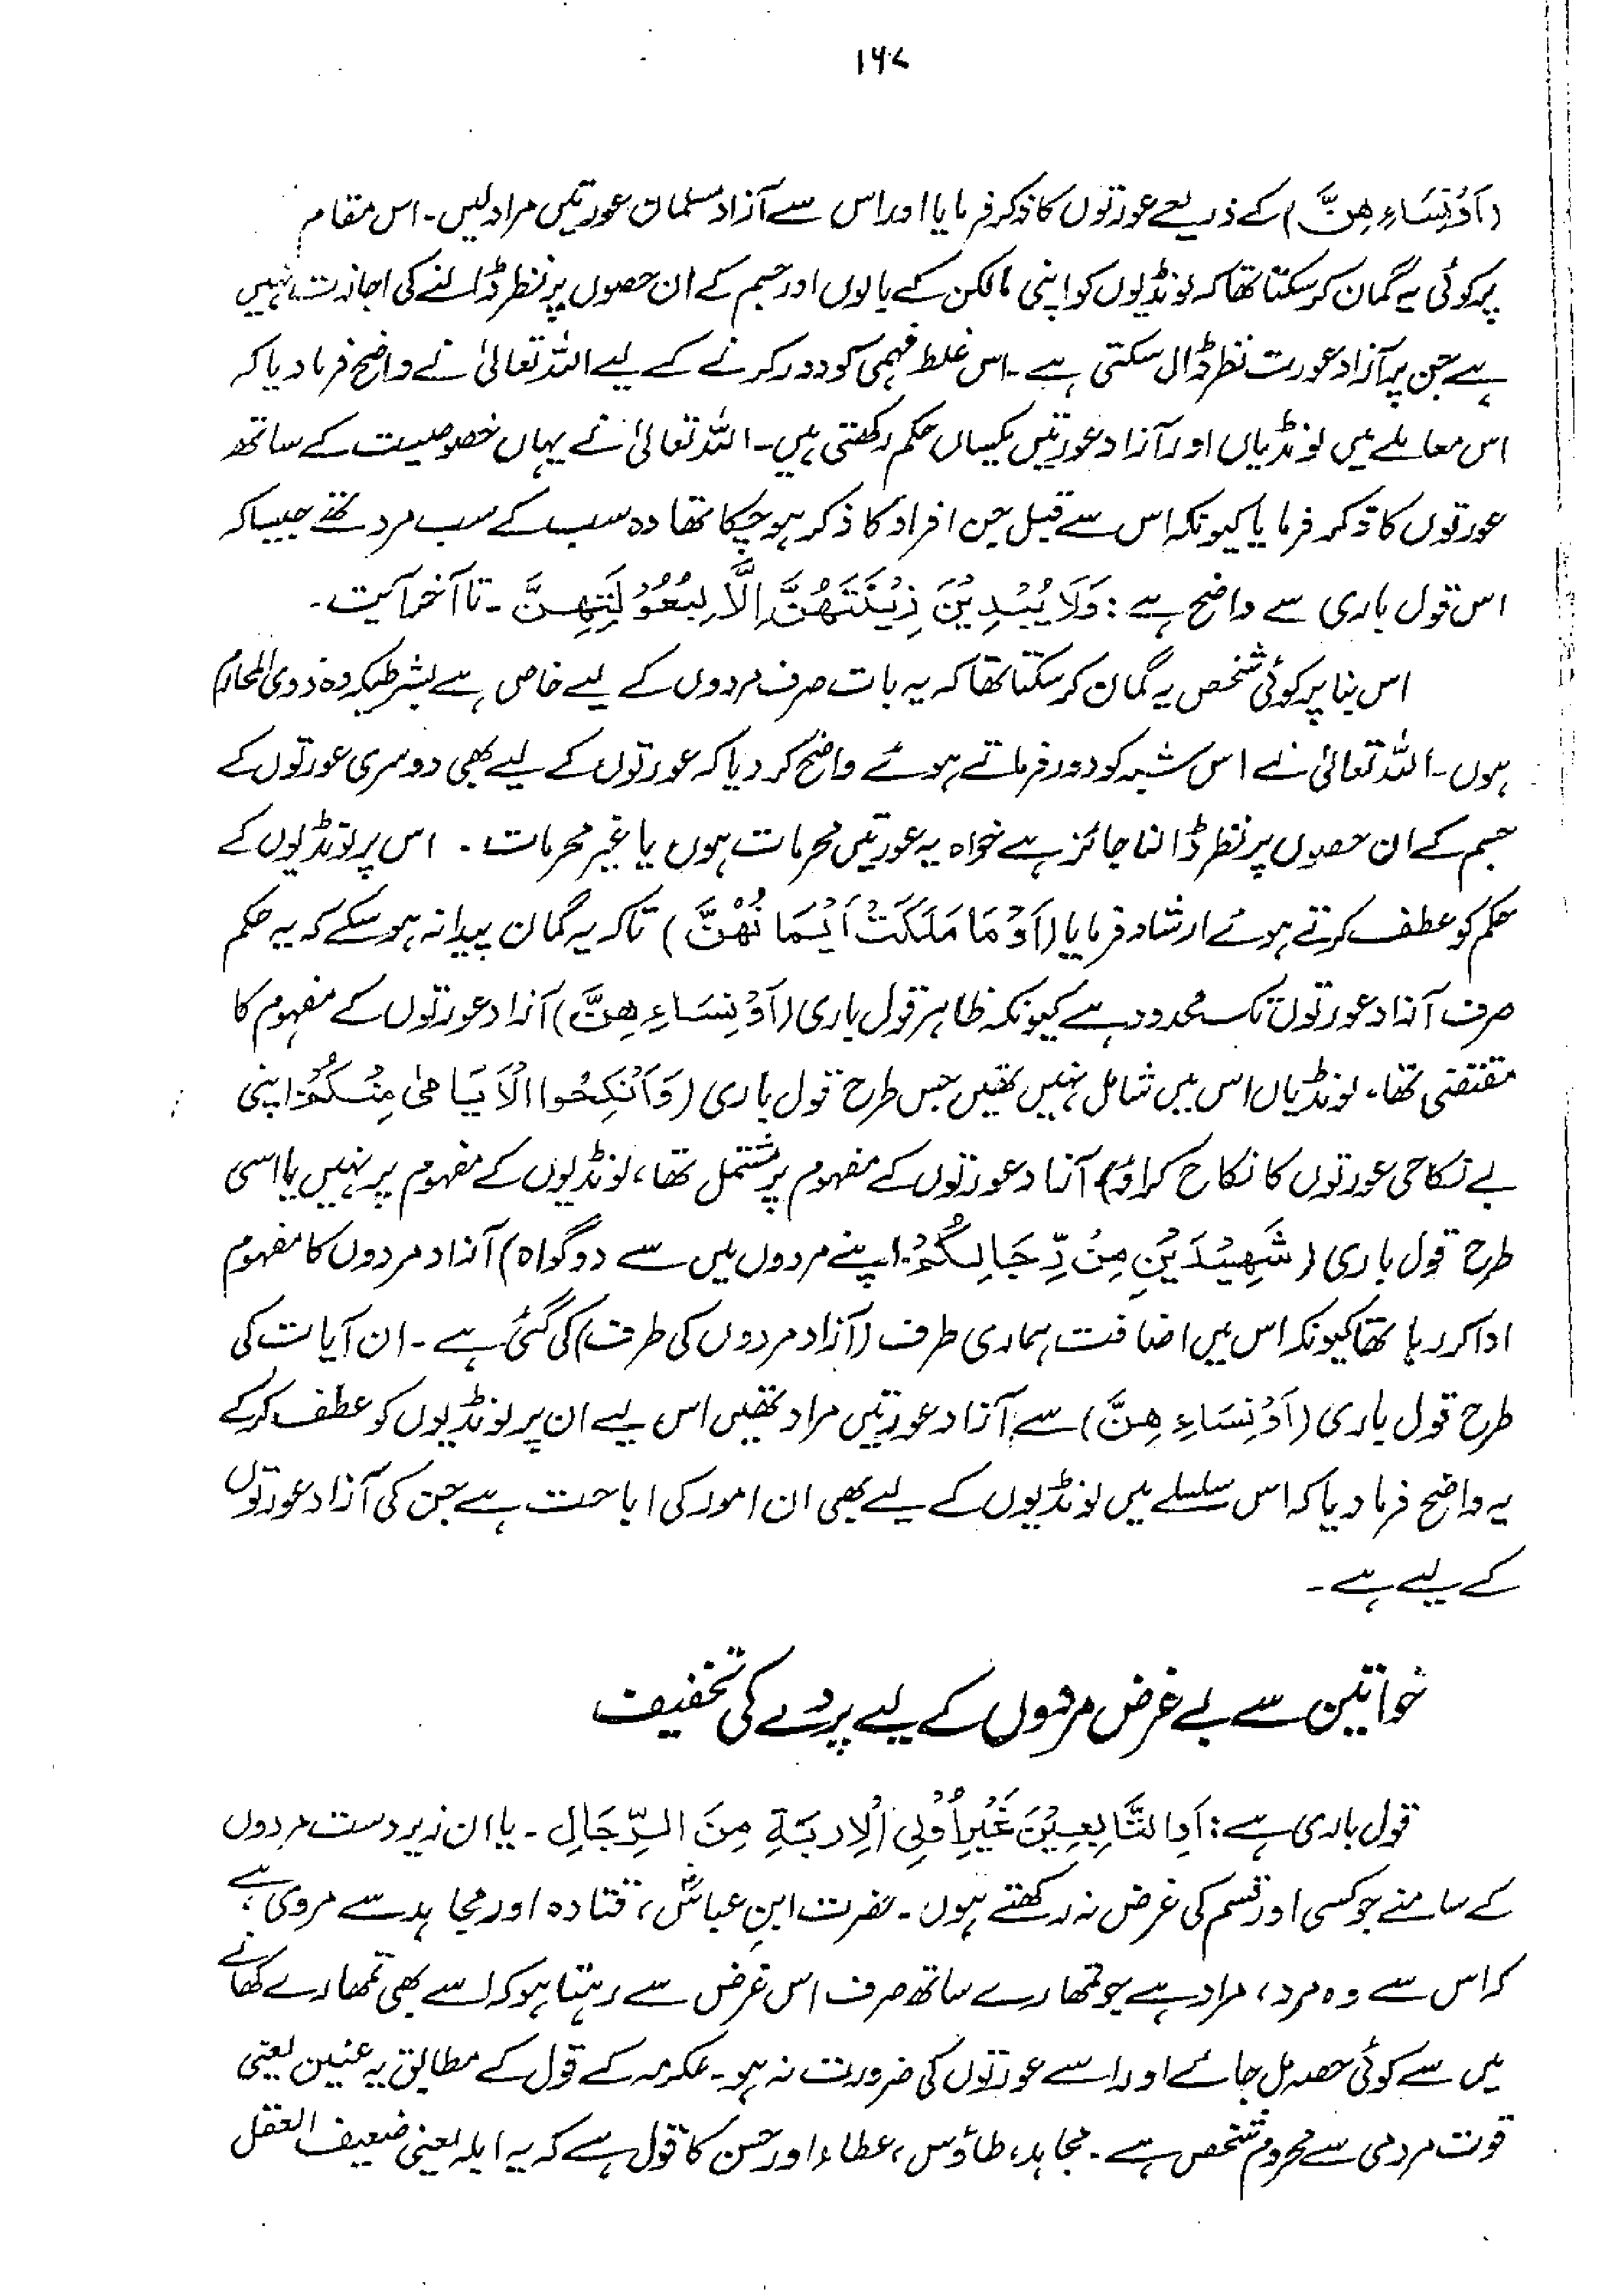 ۱۶۷
(اَوْ نِسَاءِ هِنَّ) کے ذریعے عورتوں کا ذکر فرمایا اور اس سے آزاد مسلمان عورتیں مراد لیں۔ اس مقام
پر کوئی یہ گمان کر سکتا تھا کہ لونڈیوں کو اپنی مالکن کے بالوں اور جسم کے ان حصوں پر نظر ڈالنے کی اجازت نہیں
ہے جن پر آزاد عورت نظر ڈال سکتی ہے۔ اس غلط فہمی کو دور کرنے کے لیے اللہ تعالیٰ نے واضح فرما دیا کہ
اس معاملے میں لونڈیاں اور آزاد عورتیں یکساں حکم رکھتی ہیں۔ اللہ تعالیٰ نے یہاں خصوصیت کے ساتھ
عورتوں کا ذکر فرمایا کیونکہ اس سے قبل جن افراد کا ذکر ہو چکا تھا وہ سب کے سب مرد تھے جیسا کہ
اس قول باری سے واضح ہے : وَلَا یُبْدِیْنَ زِیْنَتَهُنَّ اِلَّا لِبُعُوْلَتِهِنَّ ۔ تا آخر آیت۔
اس بنا پر کوئی شخص یہ گمان کر سکتا تھا کہ یہ بات صرف مردوں کے لیے خاص ہے بشرطیکہ وہ ذوی المحارم
ہوں۔ اللہ تعالیٰ نے اس شبہ کو دور فرماتے ہوئے واضح کر دیا کہ عورتوں کے لیے بھی دوسری عورتوں کے
جسم کے ان حصوں پر نظر ڈالنا جائز ہے خواہ یہ عورتیں محرمات ہوں یا غیر محرمات ۔ اس پر لونڈیوں کے
حکم کو عطف کرتے ہوئے ارشاد فرمایا (اَوْ مَا مَلَکَتْ اَیْمَا نُهُنَّ) تاکہ یہ گمان پیدا نہ ہو سکے کہ یہ حکم
صرف آزاد عورتوں تک محدود ہے کیونکہ ظاہر قول باری (اَوْ نِسَاءِ هِنَّ) آزاد عورتوں کے مفہوم کا
مقتضی تھا، لونڈیاں اس میں شامل نہیں تھیں جس طرح قول باری (وَاَنْکِحُوا الْاَیَامٰی مِنْکُمْ، اپنی
بے نکاحی عورتوں کا نکاح کراؤ) آزاد عورتوں کے مفہوم پر مشتمل تھا، لونڈیوں کے مفہوم پر نہیں یا اسی
طرح قول باری (شَهِیْدَیْنِ مِنْ رِّجَالِکُمْ، اپنے مردوں میں سے دو گواہ) آزاد مردوں کا مفہوم
ادا کر رہا تھا کیونکہ اس میں اضافت ہماری طرف (آزاد مردوں کی طرف) کی گئی ہے۔ ان آیات کی
طرح قول باری (اَوْ نِسَاءِ هِنَّ) سے آزاد عورتیں مراد تھیں اس لیے ان پر لونڈیوں کو عطف کر کے
یہ واضح فرما دیا کہ اس سلسلے میں لونڈیوں کے لیے بھی ان امور کی اباحت ہے جن کی آزاد عورتوں
کے لیے ہے۔
خواتین سے بے غرض مردوں کے لیے پردے کی تخفیف
قول باری ہے : اَوِ التَّابِعِیْنَ غَیْرِ اُولِی الْاِرْبَةِ مِنَ الرِّجَالِ ۔ یا ان زیر دست مردوں
کے سامنے جو کسی اور قسم کی غرض نہ رکھتے ہوں۔ حضرت ابن عباسؓ، قتادہ اور مجاہد سے مروی ہے
کہ اس سے وہ مرد، مراد ہے جو تمھارے ساتھ صرف اس غرض سے رہتا ہو کہ اسے بھی تمھارے کھانے
میں سے کوئی حصہ مل جائے اور اسے عورتوں کی ضرورت نہ ہو۔ عکرمہ کے قول کے مطابق یہ عنین یعنی
قوت مردمی سے محروم شخص ہے۔ مجاہد، طاؤس، عطاء اور حسن کا قول ہے کہ یہ ابلہ یعنی ضعیف العقل